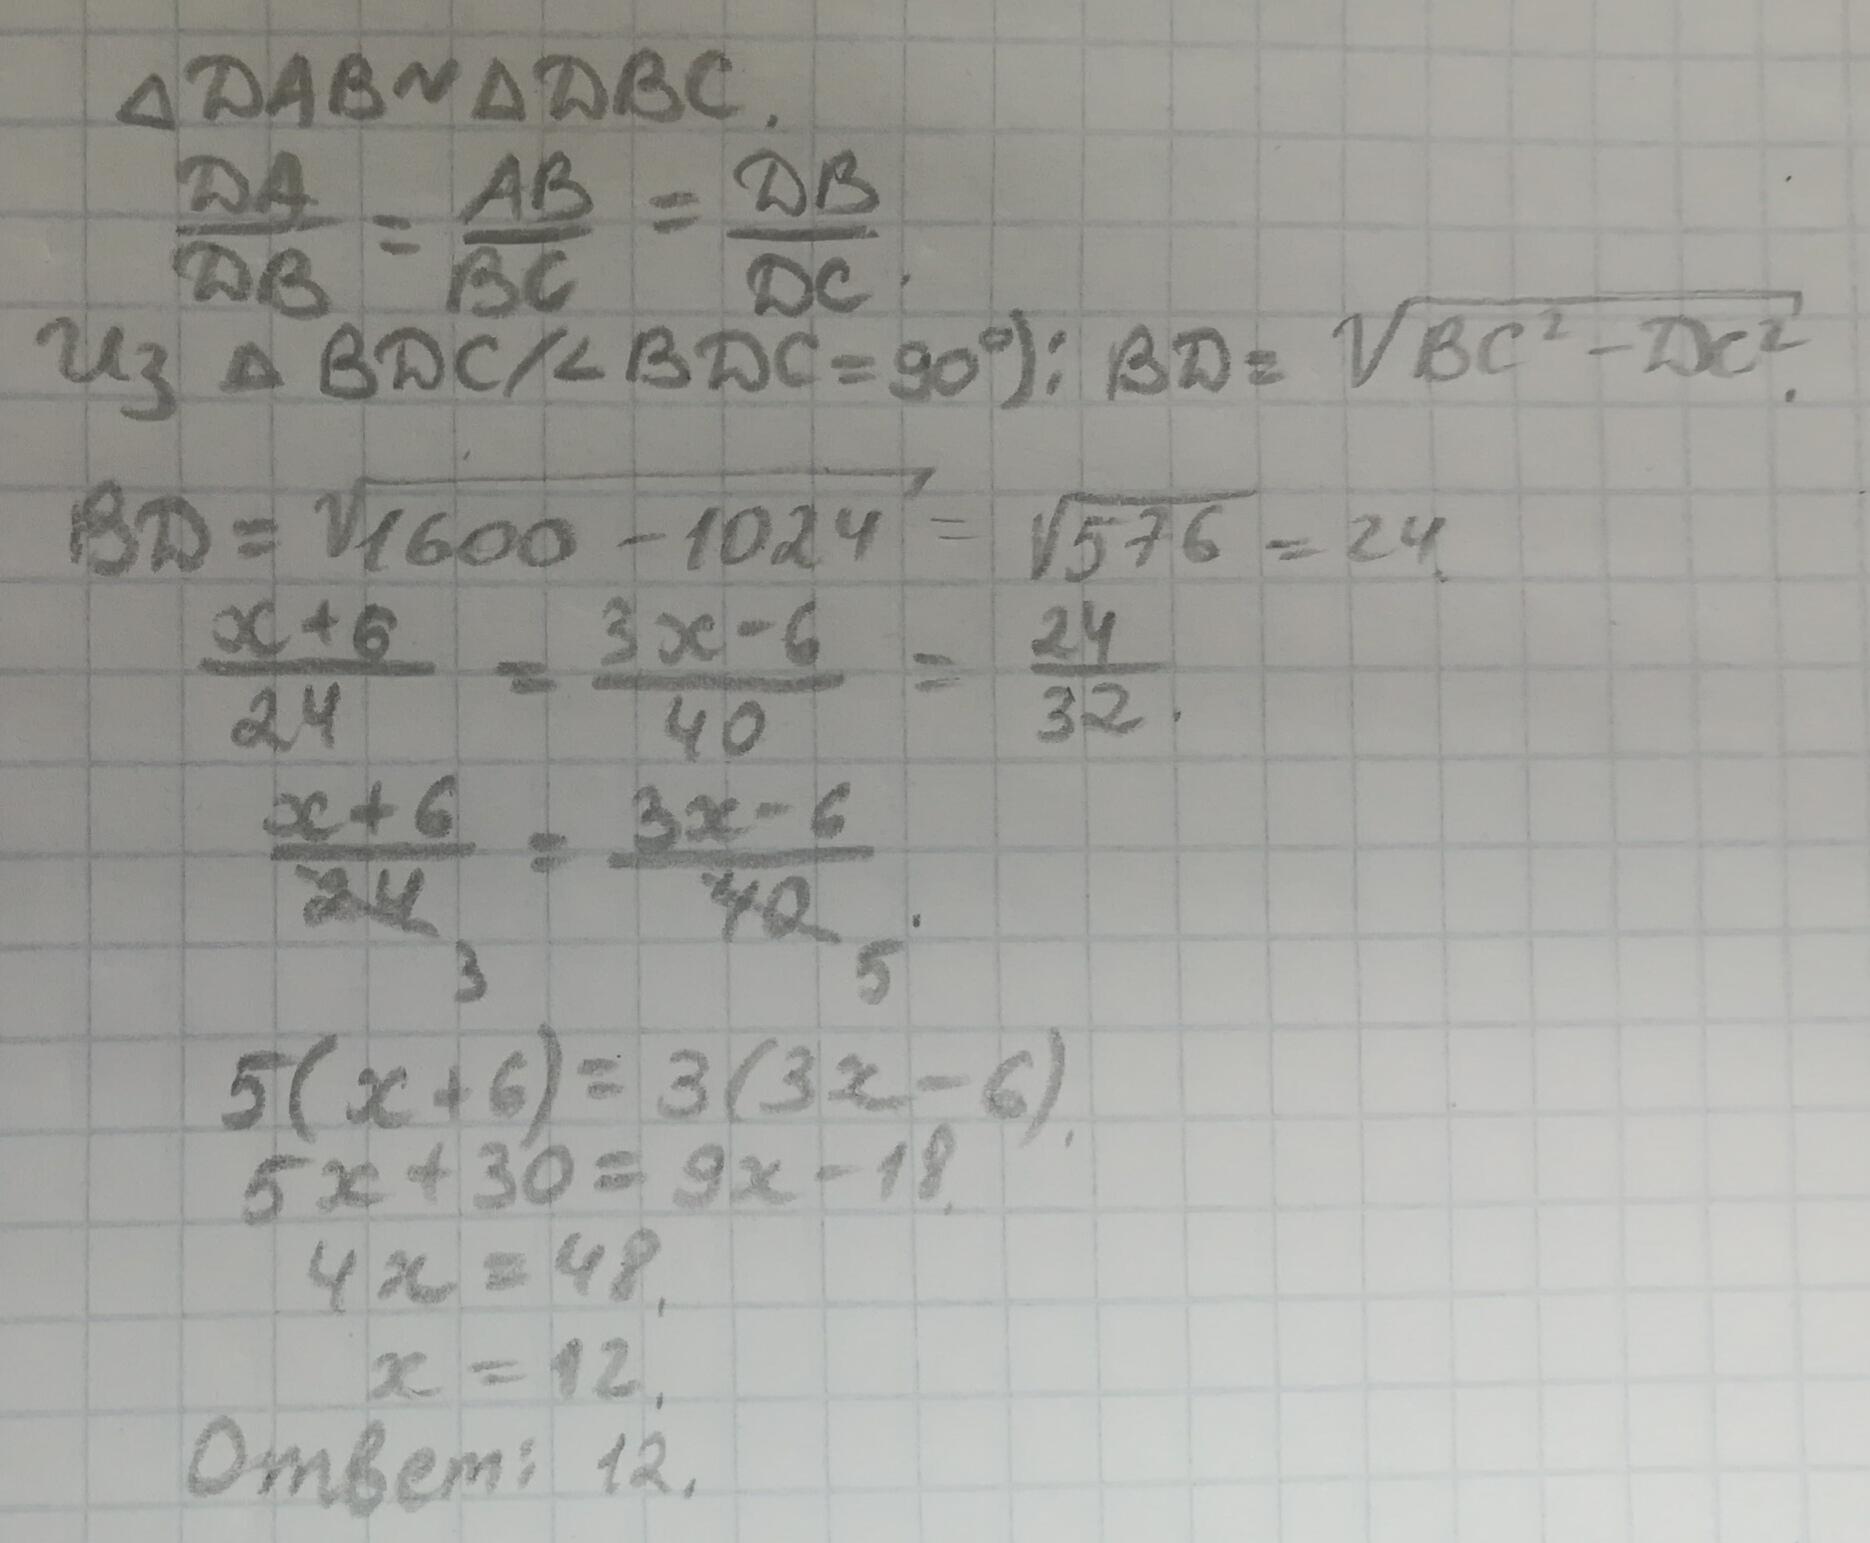 △DAB∾△DBC.
DA/DB = AB/BC = DB/DC.
Из △BDC(∠BDC=90°): BD=√(BC²-DC²).
BD=√(1600-1024)=√576=24.
(x+6)/24 = (3x-6)/40 = 24/32.
(x+6)/24 3 = (3x-6)/40 5.
5(x+6)=3(3x-6).
5x+30=9x-18.
4x=48.
x=12.
Ответ: 12.